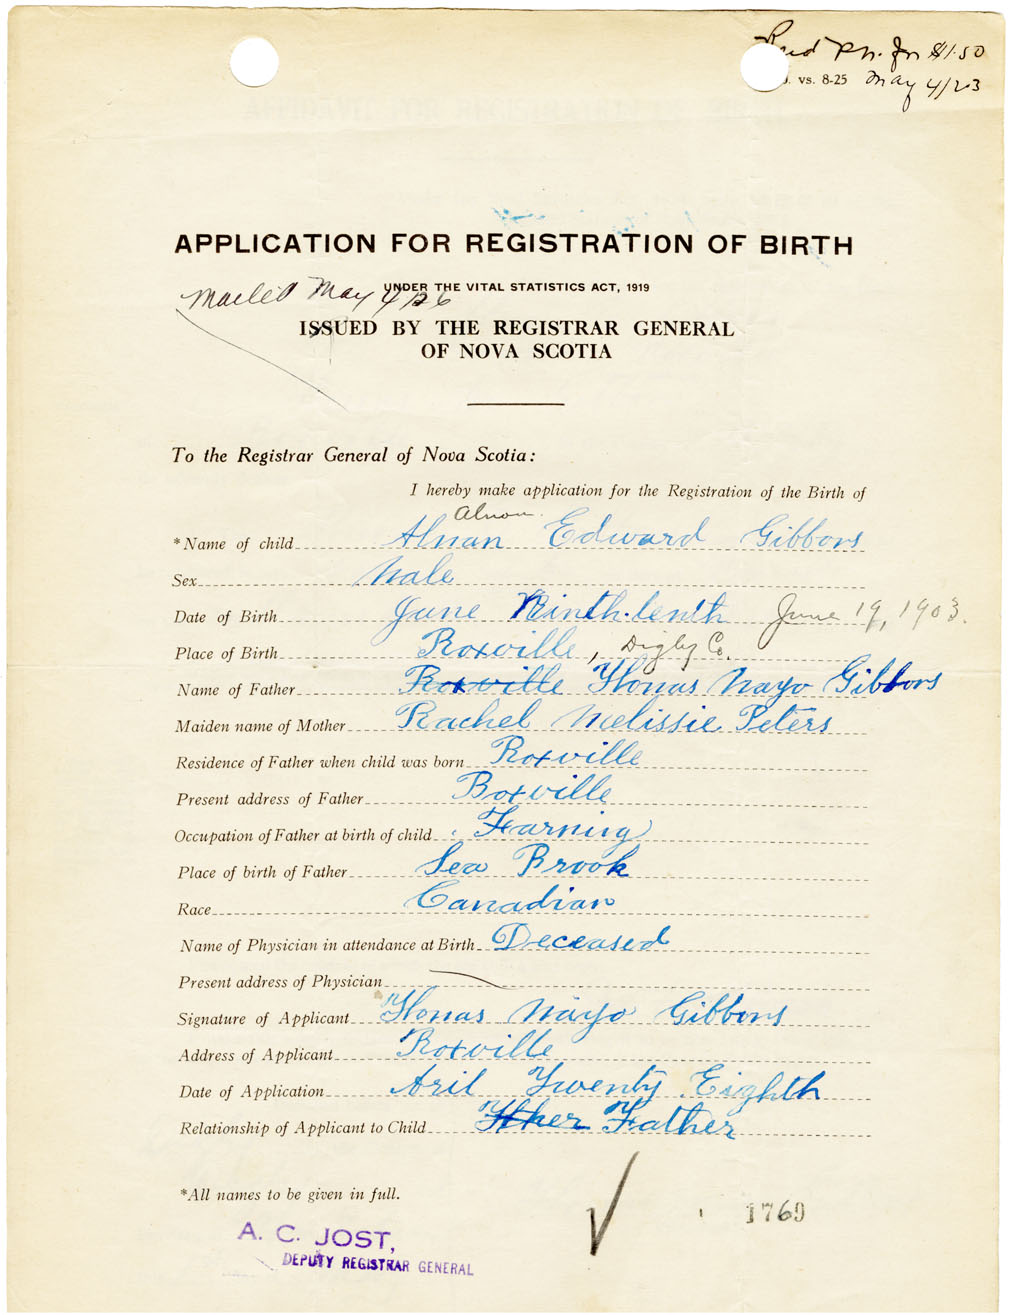 Rec'd P.N. for $1.50
D. vs. 8-25 May 4/23
APPLICATION FOR REGISTRATION OF BIRTH
UNDER THE VITAL STATISTICS ACT, 1919
Mailed May 4/26
ISSUED BY THE REGISTRAR GENERAL
OF NOVA SCOTIA
To the Registrar General of Nova Scotia:
I hereby make application for the Registration of the Birth of
Alnon.
*Name of child Alnan Edward Gibbons
Sex Male
Date of Birth June Ninth.tenth June 19, 1903.
Place of Birth Roxville, Digby Co.
Name of Father Roxville Thomas Mayo Gibbons
Maiden name of Mother Rachel Melissie Peters
Residence of Father when child was born Roxville
Present address of Father Roxville
Occupation of Father at birth of child Farming
Place of birth of Father Sea Brook
Race Canadian
Name of Physician in attendance at Birth Deceased
Present address of Physician
Signature of Applicant Thomas Mayo Gibbons
Address of Applicant Roxville
Date of Application Aril Twenty Eighth
Relationship of Applicant to Child Father
*All names to be given in full.
1769
A. C. JOST,
DEPUTY REGISTRAR GENERAL